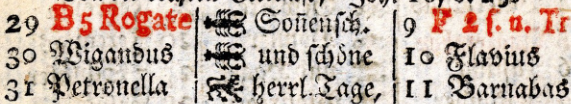 29 B 5 Rogate Soñensch. 9 F 2 s. n. Tr
30 Wigandus und schöne 10 Flavius
31 Petronella herrl. Tage, 11 Barnabas